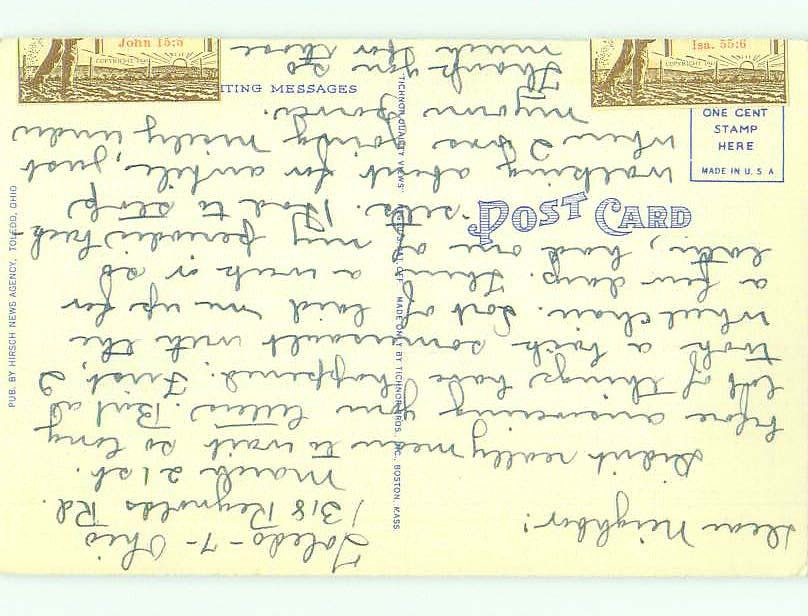 Toledo-7-Ohio
1318 Reynolds Rd.
March 21st.
Dear Neighbor!
Didn't really mean to wait so long
before answering your letters. But a
lot of things have happened. First, I
took a back somersault with the
Wheelchair. Sort of laid me up for
a few days. Then a week or so
later, had one of my periodic back
sets. Had to stop
walking about for awhile, just
when I was going nicely under
my own power.
Thank you so
much for those
John 15:5
COPYRIGHT
Isa. 55:6
COPYRIGHT
ITING MESSAGES
ONE CENT
STAMP
HERE
MADE IN U. S A
POST CARD
PUB. BY HIRSCH NEWS AGENCY, TOLEDO, OHIO
TICHNOR QUALITY VIEWS MADE ONLY BY TICHNOR BROS. INC., BOSTON, MASS.